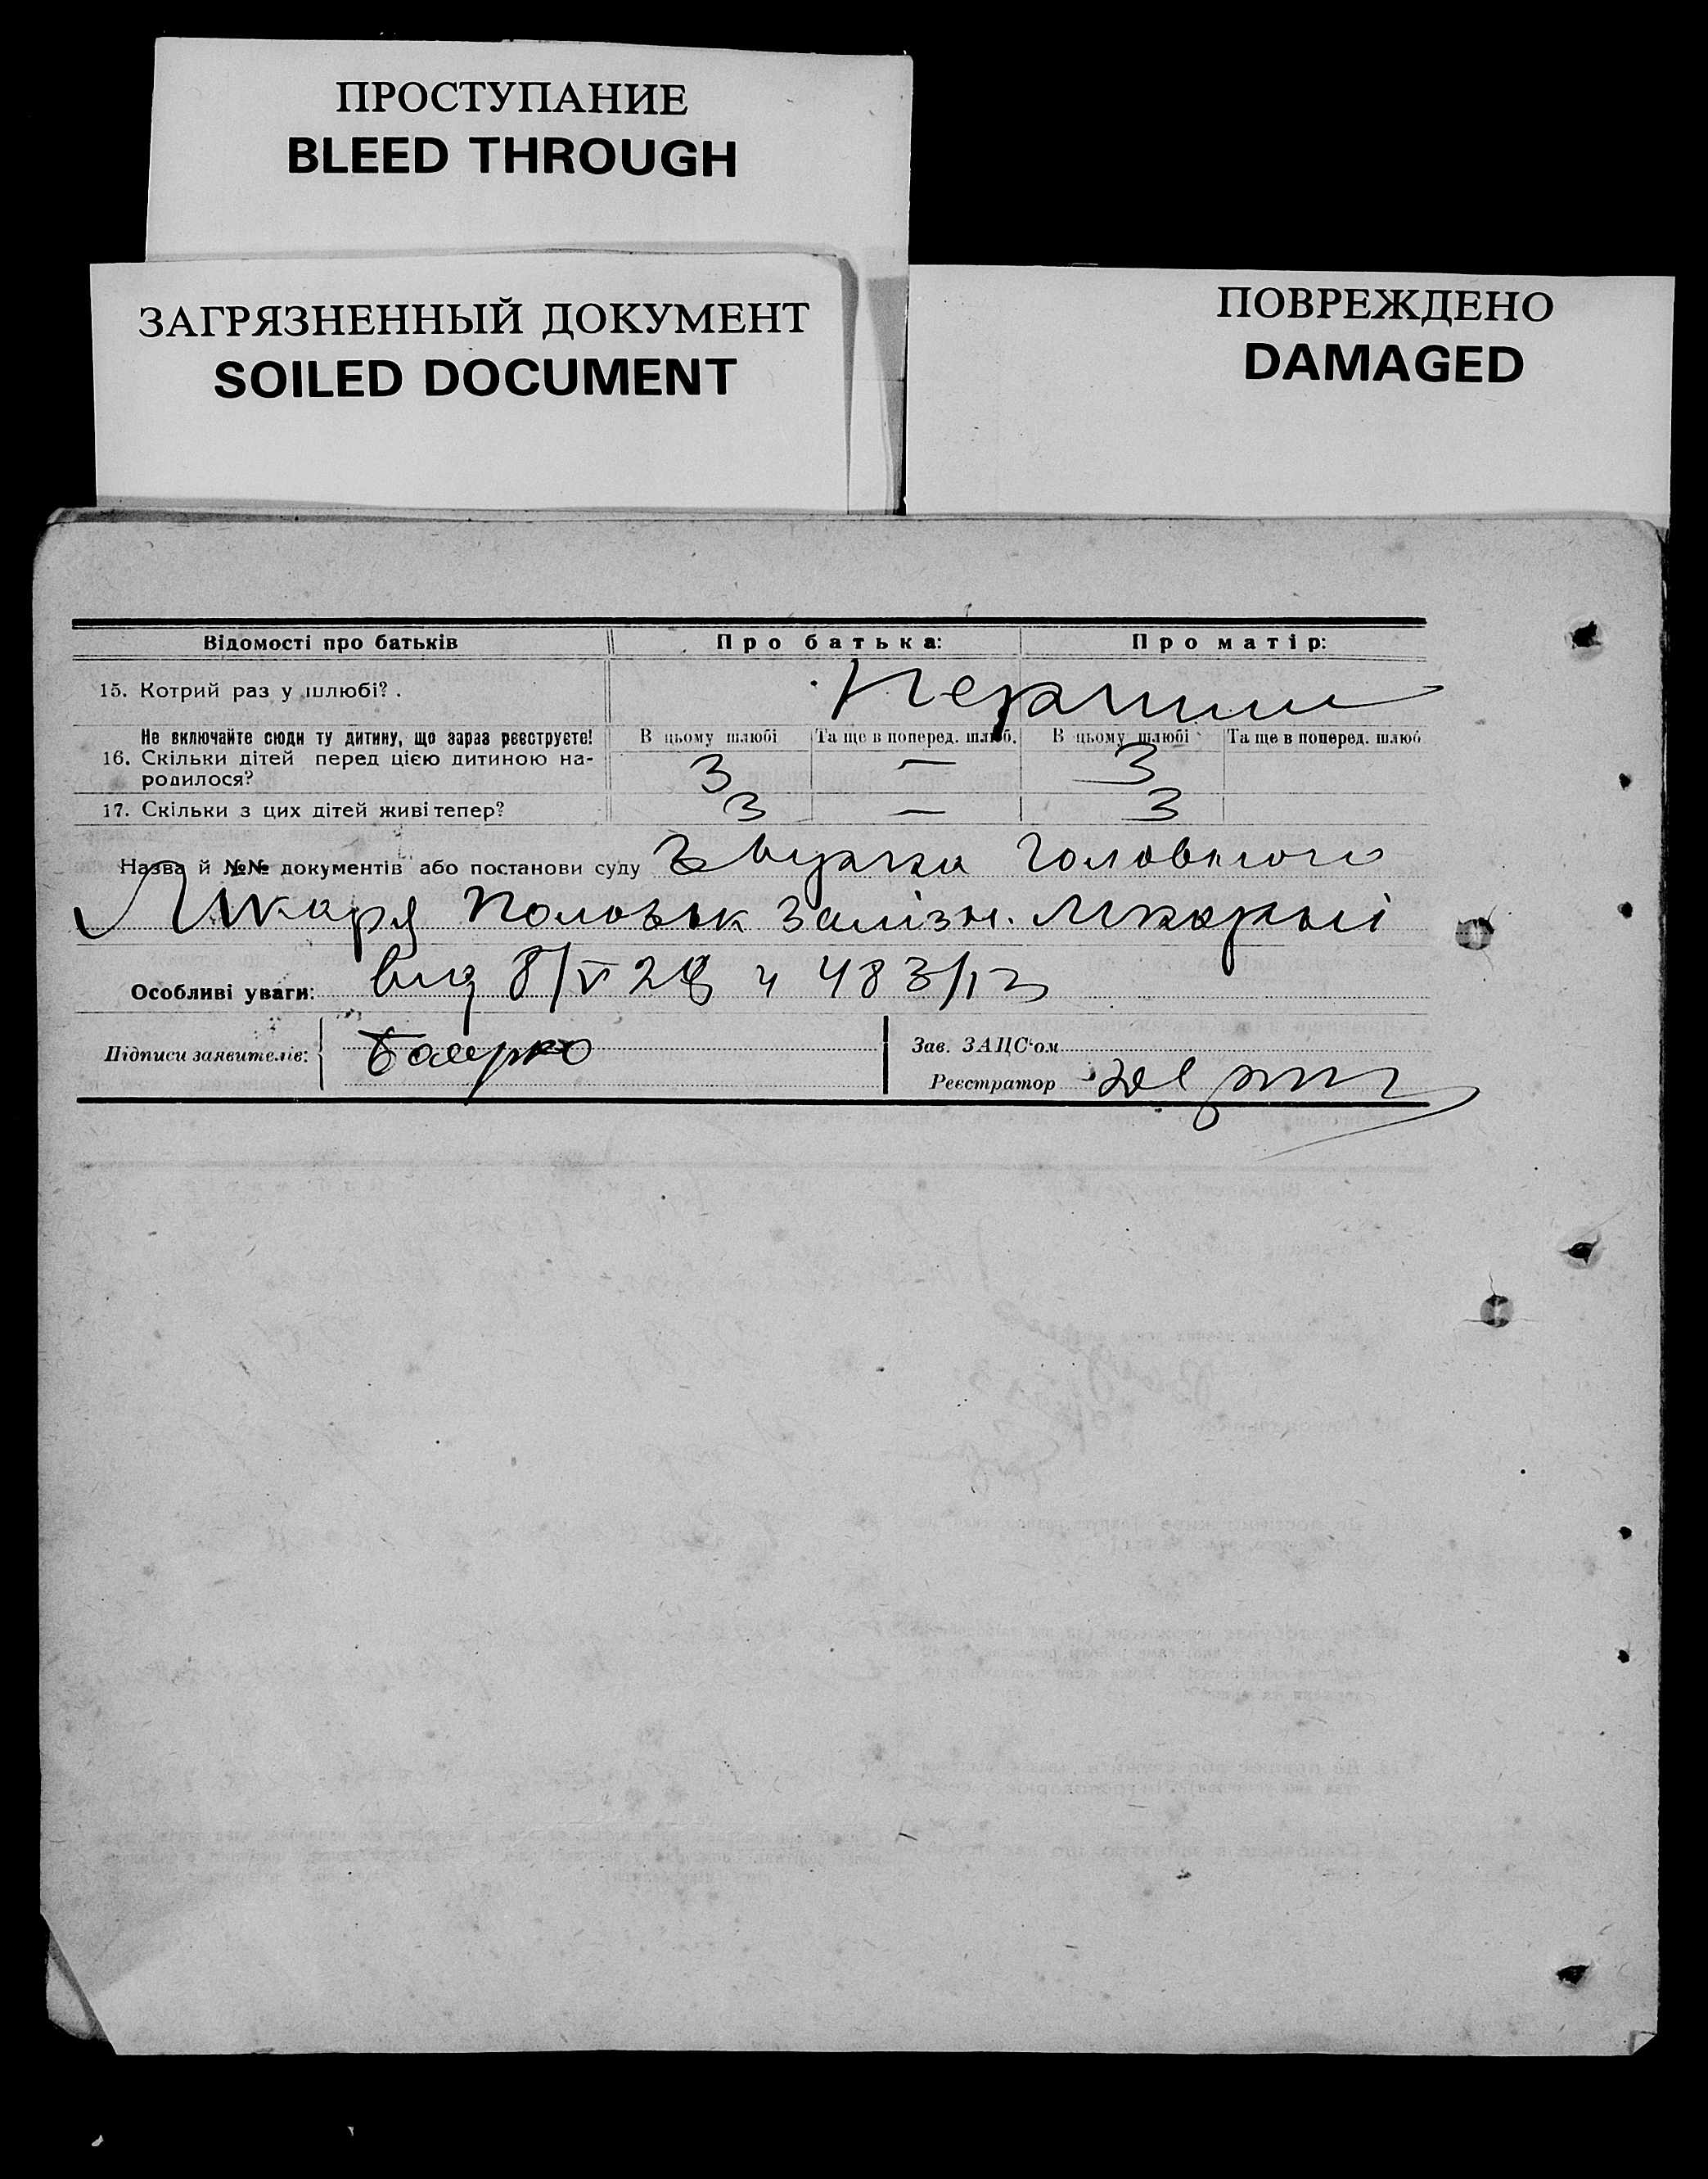 ПРОСТУПАНИЕ
BLEED THROUGH
ЗАГРЯЗНЕННЫЙ ДОКУМЕНТ
SOILED DOCUMENT
ПОВРЕЖДЕНО
DAMAGED
Відомості про батьків Про батька: Про матір:
15. Котрий раз у шлюбі? .
Не включайте сюди ту дитину, що зараз реєструєте! В цьому шлюбі Та ще в поперед. шлюб. В цьому шлюбі Та ще в поперед. шлюб
16. Скільки дітей перед цією дитиною на-
родилося? 3 — 3
17. Скільки з цих дітей живі тепер? 3 — 3
Назва й №№ документів або постанови суду Головного
Лікаря Залізн. Лікарні
Особливі уваги: від 8/V 28 ч 483/13
Підписи заявителів:
Зав. ЗАЦС‘ом
Реєстратор